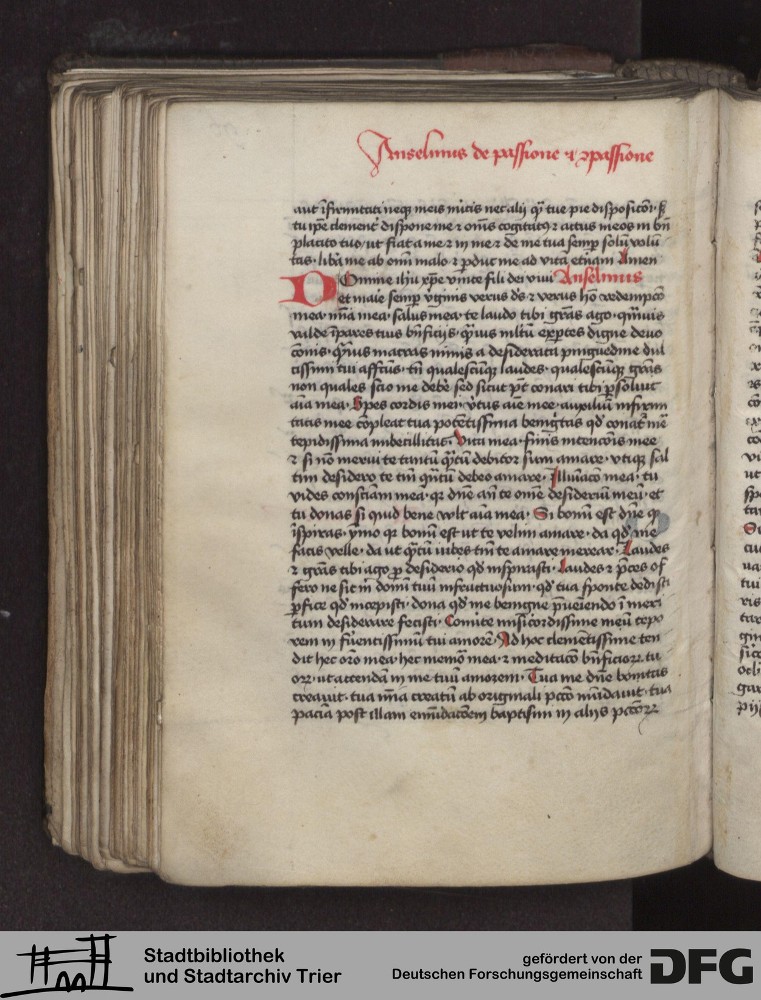 Anselmus de passione ⁊ ꝯpassione
aut ĩfirmitati neqꝫ meis nec alij qͣ tue pie disposicõi ꝫ
tu ip̃e clemenť dispone me ⁊ om̃s cogitatꝰ ⁊ actus meos in bñ
placito tuo, ut fiat a me ⁊ in me ⁊ de me tua semp̱ solũ volũ
tas. libͣa me ab om̃i malo ⁊ ꝑduc me ad vitã et̃nam Amen
DOmine ih̃u xp̃e fili dei viui Anselmus
et marie semp̱ ṽginis verus dꝰs ⁊ verus hõ redempcõ
mea. mĩa mea. salus mea. te laudo tibi gr̃as ago. qͣmuis
valde ĩpares tuis bñficijs. qͣuis ml̃tũ exp̱tes digne deuo
cõnis. qͣuis macras nimis a desiderata pinguedine dul
cissimi tui affcũs. tñ qualescũqꝫ laudes. qualescũqꝫ gr̃as
non quales scio me deb̃e sed sicut pt̃ conari tibi ꝑsoluit
aĩa mea. Spes cordis mei. ṽtus aĩe mee. auxiliũ infirmi
tatis mee cõpleat tua potẽtissima benig̃tas qd̓ conat᷑
tepidissima imbecillitas. Vita mea. finis intencõis mee
⁊ si nõ merui te tantũ qͣtũ debitor sum amare. vtiqꝫ sal
tim desidero te tm̃ qͣntũ debeo amare. Illuĩacõ mea. tu
vides consciam meã. qꝛ dñe añ te om̃e desideriũ meũ. et
tu donas si quid bene vult aĩa mea. Si bonũ est dñe qͦ
ĩspiras. ymo qꝛ bonũ est ut te velim amare. da qd̓ me
facis velle. da ut qͣtũ iubes tm̃ te amare merear. Laudes
⁊ gr̃as tibi ago ꝓ desiderio qd̓ inspirasti. Laudes ⁊ p̃ces of
fero ne sit m̃ donũ tuũ infructuosum. qd̓ tua sponte dedisti
ꝑfice qd̓ incepisti. dona qd̓ me benigne p̃ueniendo ĩmeri
tum desiderare fecisti. Conṽte misicordissime meũ tepo
rem in feruentissimũ tui amorẽ. Ad hoc clementissime ten
dit hec or̃o mea. hec memõ mea. ⁊ meditacõ bñficioꝝ tu
oꝝ. ut accendã in me tuũ amorem. Tua me dñe bonitas
creauit. tua mĩa creatũ ab originali pctõ mũdauit. tua
paciã post illam emũdacõem baptismi in alijs pctõꝝ
Stadtbibliothek
und Stadtarchiv Trier
gefördert von der
Deutschen Forschungsgemeinschaft
DFG